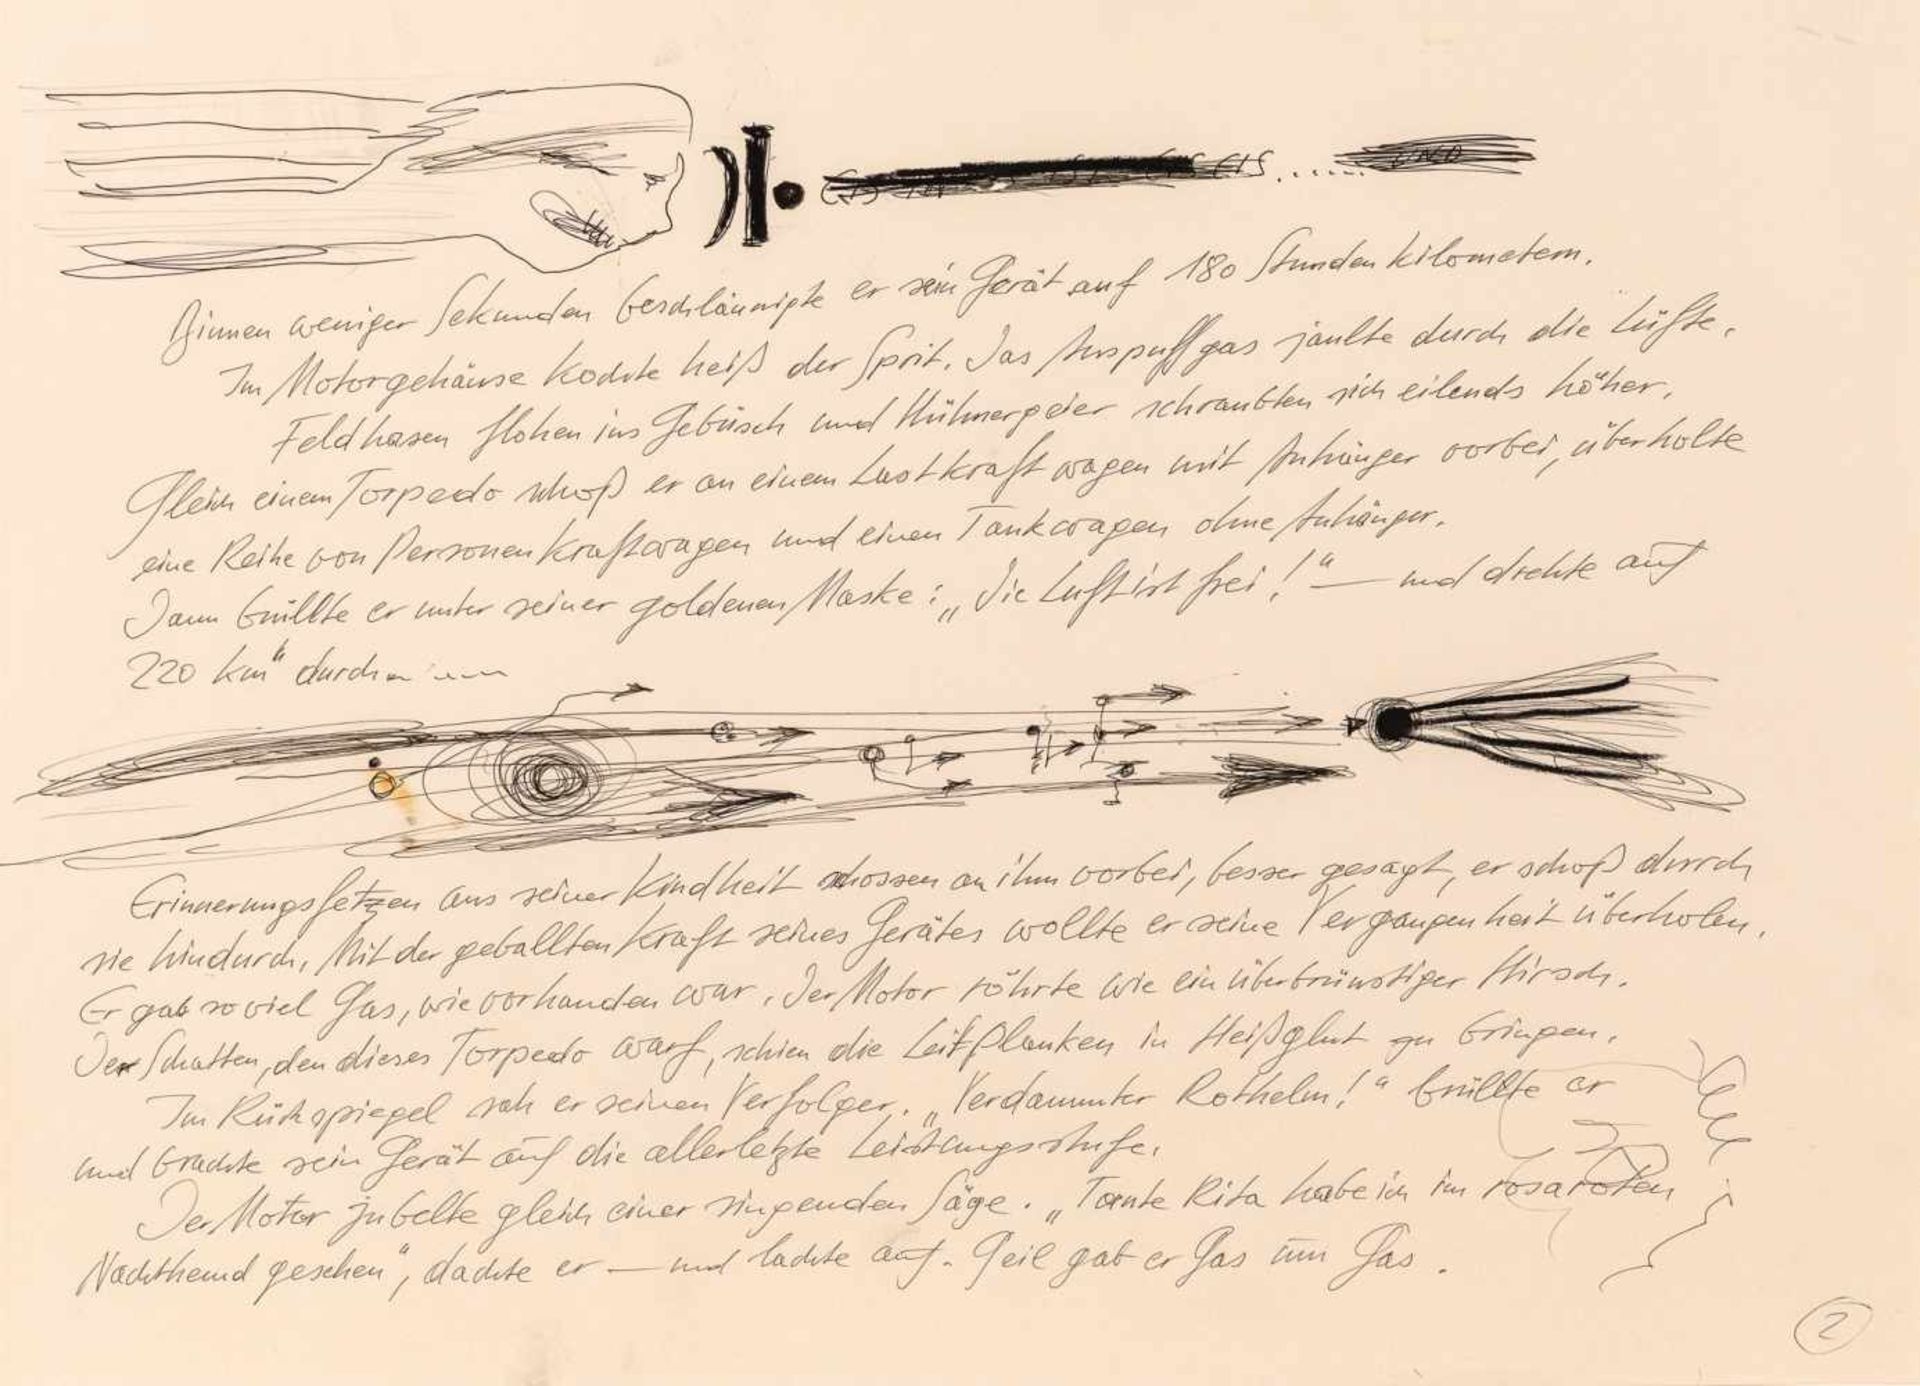 EIS EIS ..... UND
Binnen weniger Sekunden beschläunigte er sein Gerät auf 180 Stundenkilometern.
Im Motorgehäuse kochte heiß der Sprit. Das Auspuffgas jaulte durch die Lüfte.
Feldhasen flohen ins Gebüsch und Hühnergeier schraubten sich eilends höher.
Gleich einem Torpedo schoß er an einem Lastkraftwagen mit Anhänger vorbei, überholte
eine Reihe von Personenkraftwagen und einen Tankwagen ohne Anhänger.
Dann brüllte er unter seiner goldenen Maske: „Die Luft ist frei!“ — und drehte auf
220 km" durch
Erinnerungsfetzen aus seiner Kindheit schossen an ihm vorbei, besser gesagt, er schoß durch
sie hindurch. Mit der geballten Kraft seines Gerätes wollte er seine Vergangenheit überholen.
Er gab so viel Gas, wie vorhanden war. Der Motor röhrte wie ein überbrünstiger Hirsch.
Der Schatten, den dieses Torpedo warf, schien die Leitplanken in Heißglut zu bringen.
Im Rückspiegel sah er seinen Verfolger. „Verdammter Rothelm!“ brüllte er
und brachte sein Gerät auf die allerletzte Leistungsstufe.
Der Motor jubelte gleich einer singenden Säge. „Tante Rita habe ich im rosaroten
Nachthemd gesehen“, dachte er — und lachte auf. Geil gab er Gas um Gas.
2